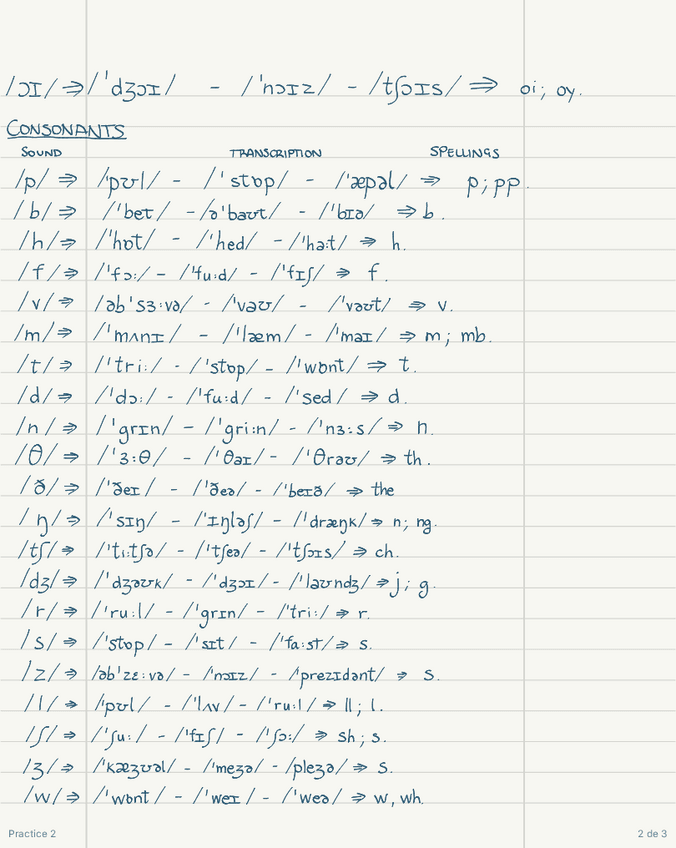 /ɔɪ/ ⇒ /ˈdʒɔɪ/ - /ˈnɔɪz/ - /tʃɔɪs/ ⇒ oi; oy.
CONSONANTS
SOUND TRANSCRIPTION SPELLINGS
/p/ ⇒ /ˈpʊl/ - /ˈstɒp/ - /ˈæpəl/ ⇒ p; pp.
/b/ ⇒ /ˈbet/ - /əˈbaʊt/ - /ˈbɪə/ ⇒ b.
/h/ ⇒ /ˈhɒt/ - /ˈhed/ - /ˈha:t/ ⇒ h.
/f/ ⇒ /ˈfɔ:/ - /ˈfu:d/ - /ˈfɪʃ/ ⇒ f.
/v/ ⇒ /əbˈsɜ:və/ - /ˈvaʊ/ - /ˈvəʊt/ ⇒ v.
/m/ ⇒ /ˈmʌnɪ/ - /ˈlæm/ - /ˈmaɪ/ ⇒ m; mb.
/t/ ⇒ /ˈtri:/ - /ˈstɒp/ - /ˈwɒnt/ ⇒ t.
/d/ ⇒ /ˈdɔ:/ - /ˈfu:d/ - /ˈsed/ ⇒ d.
/n/ ⇒ /ˈgrɪn/ - /ˈgri:n/ - /ˈnɜ:s/ ⇒ n.
/θ/ ⇒ /ˈɜ:θ/ - /ˈθaɪ/ - /ˈθrəʊ/ ⇒ th.
/ð/ ⇒ /ˈðeɪ/ - /ˈðeə/ - /ˈbeɪð/ ⇒ the
/ŋ/ ⇒ /ˈsɪŋ/ - /ˈɪŋləʃ/ - /ˈdræŋk/ ⇒ n; ng.
/tʃ/ ⇒ /ˈti:tʃə/ - /ˈtʃeə/ - /ˈtʃɔɪs/ ⇒ ch.
/dʒ/ ⇒ /ˈdʒəʊk/ - /ˈdʒɔɪ/ - /ˈlaʊndʒ/ ⇒ j; g.
/r/ ⇒ /ˈru:l/ - /ˈgrɪn/ - /ˈtri:/ ⇒ r.
/s/ ⇒ /ˈstɒp/ - /ˈsɪt/ - /ˈfa:st/ ⇒ s.
/z/ ⇒ /əbˈzɛ:və/ - /ˈnɔɪz/ - /ˈprezɪdənt/ ⇒ s.
/l/ ⇒ /ˈpʊl/ - /ˈlʌv/ - /ˈru:l/ ⇒ ll; l.
/ʃ/ ⇒ /ˈʃu:/ - /ˈfɪʃ/ - /ˈʃɔ:/ ⇒ sh; s.
/ʒ/ ⇒ /ˈkæʒʊəl/ - /ˈmeʒə/ - /pleʒə/ ⇒ s.
/w/ ⇒ /ˈwɒnt/ - /ˈweɪ/ - /ˈweə/ ⇒ w, wh.
Practice 2 2 de 3